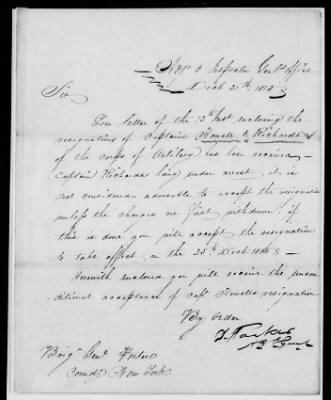 Adjt & Inspector Genls Office
Decb 20th 1815
Sir
Your letter of the 13th Inst enclosing the
resignations of Captains Howell & Richards
of the corps of Artillery has been received –
Captain Richards being under arrest it is
not considered advisable to accept the resignation
unless the charges are first withdrawn, if
this is done you will accept the resignation
to take effect on the 25th Decb 1815 –
Herewith enclosed you will receive the uncon-
ditional acceptance of Capt Howells resignation
By order
D. Parker
Brigr Genl Porter
comdg New York